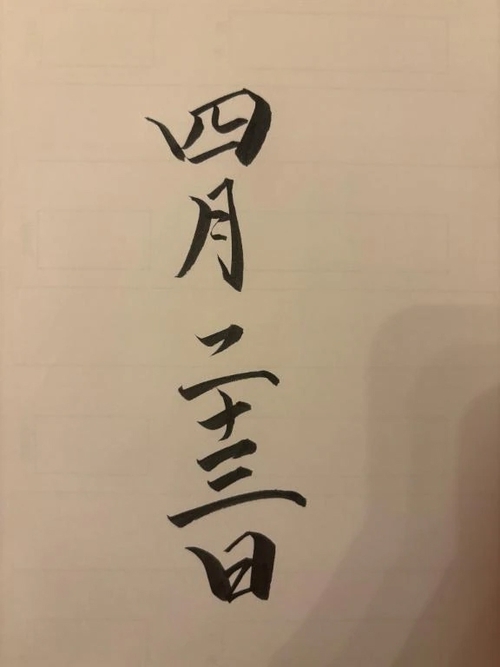 四月二十三日